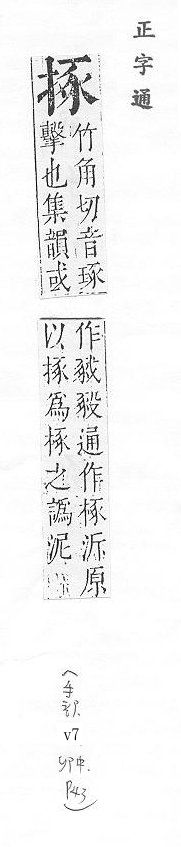 正字通
㧻
竹角切音琢
擊也集韻或
作豛通作椓泝原
以㧻為椓之譌泥
〈手部
v7
卯中.
P43〉